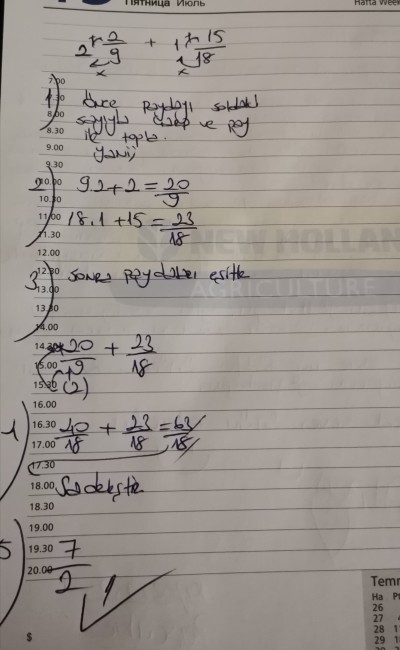 Пятница Июль
Hafta Week
2 2/9 + 1 15/18
x x
7.00
1) 7.30 Önce paydayı soldaki
8.00 sayıyla çarp ve pay
8.30 ile topla.
9.00 yani;
9.30
2) 10.00 9.2+2 = 20/9
10.30
11.00 18.1 +15 = 23/18
11.30
NEW HOLLAN
12.00
3) 12.30 sonra paydaları eşitle
13.00
AGRICULTURE
13.30
14.00
14.30 20/9 + 23/18
15.00
15.30 (2)
16.00
16.30 40/18 + 23/18 = 63/18
17.00
17.30
18.00 Sadeleştir
18.30
19.00
5) 19.30 7/2
20.00
$
Temm
Ha
26
27
28
29